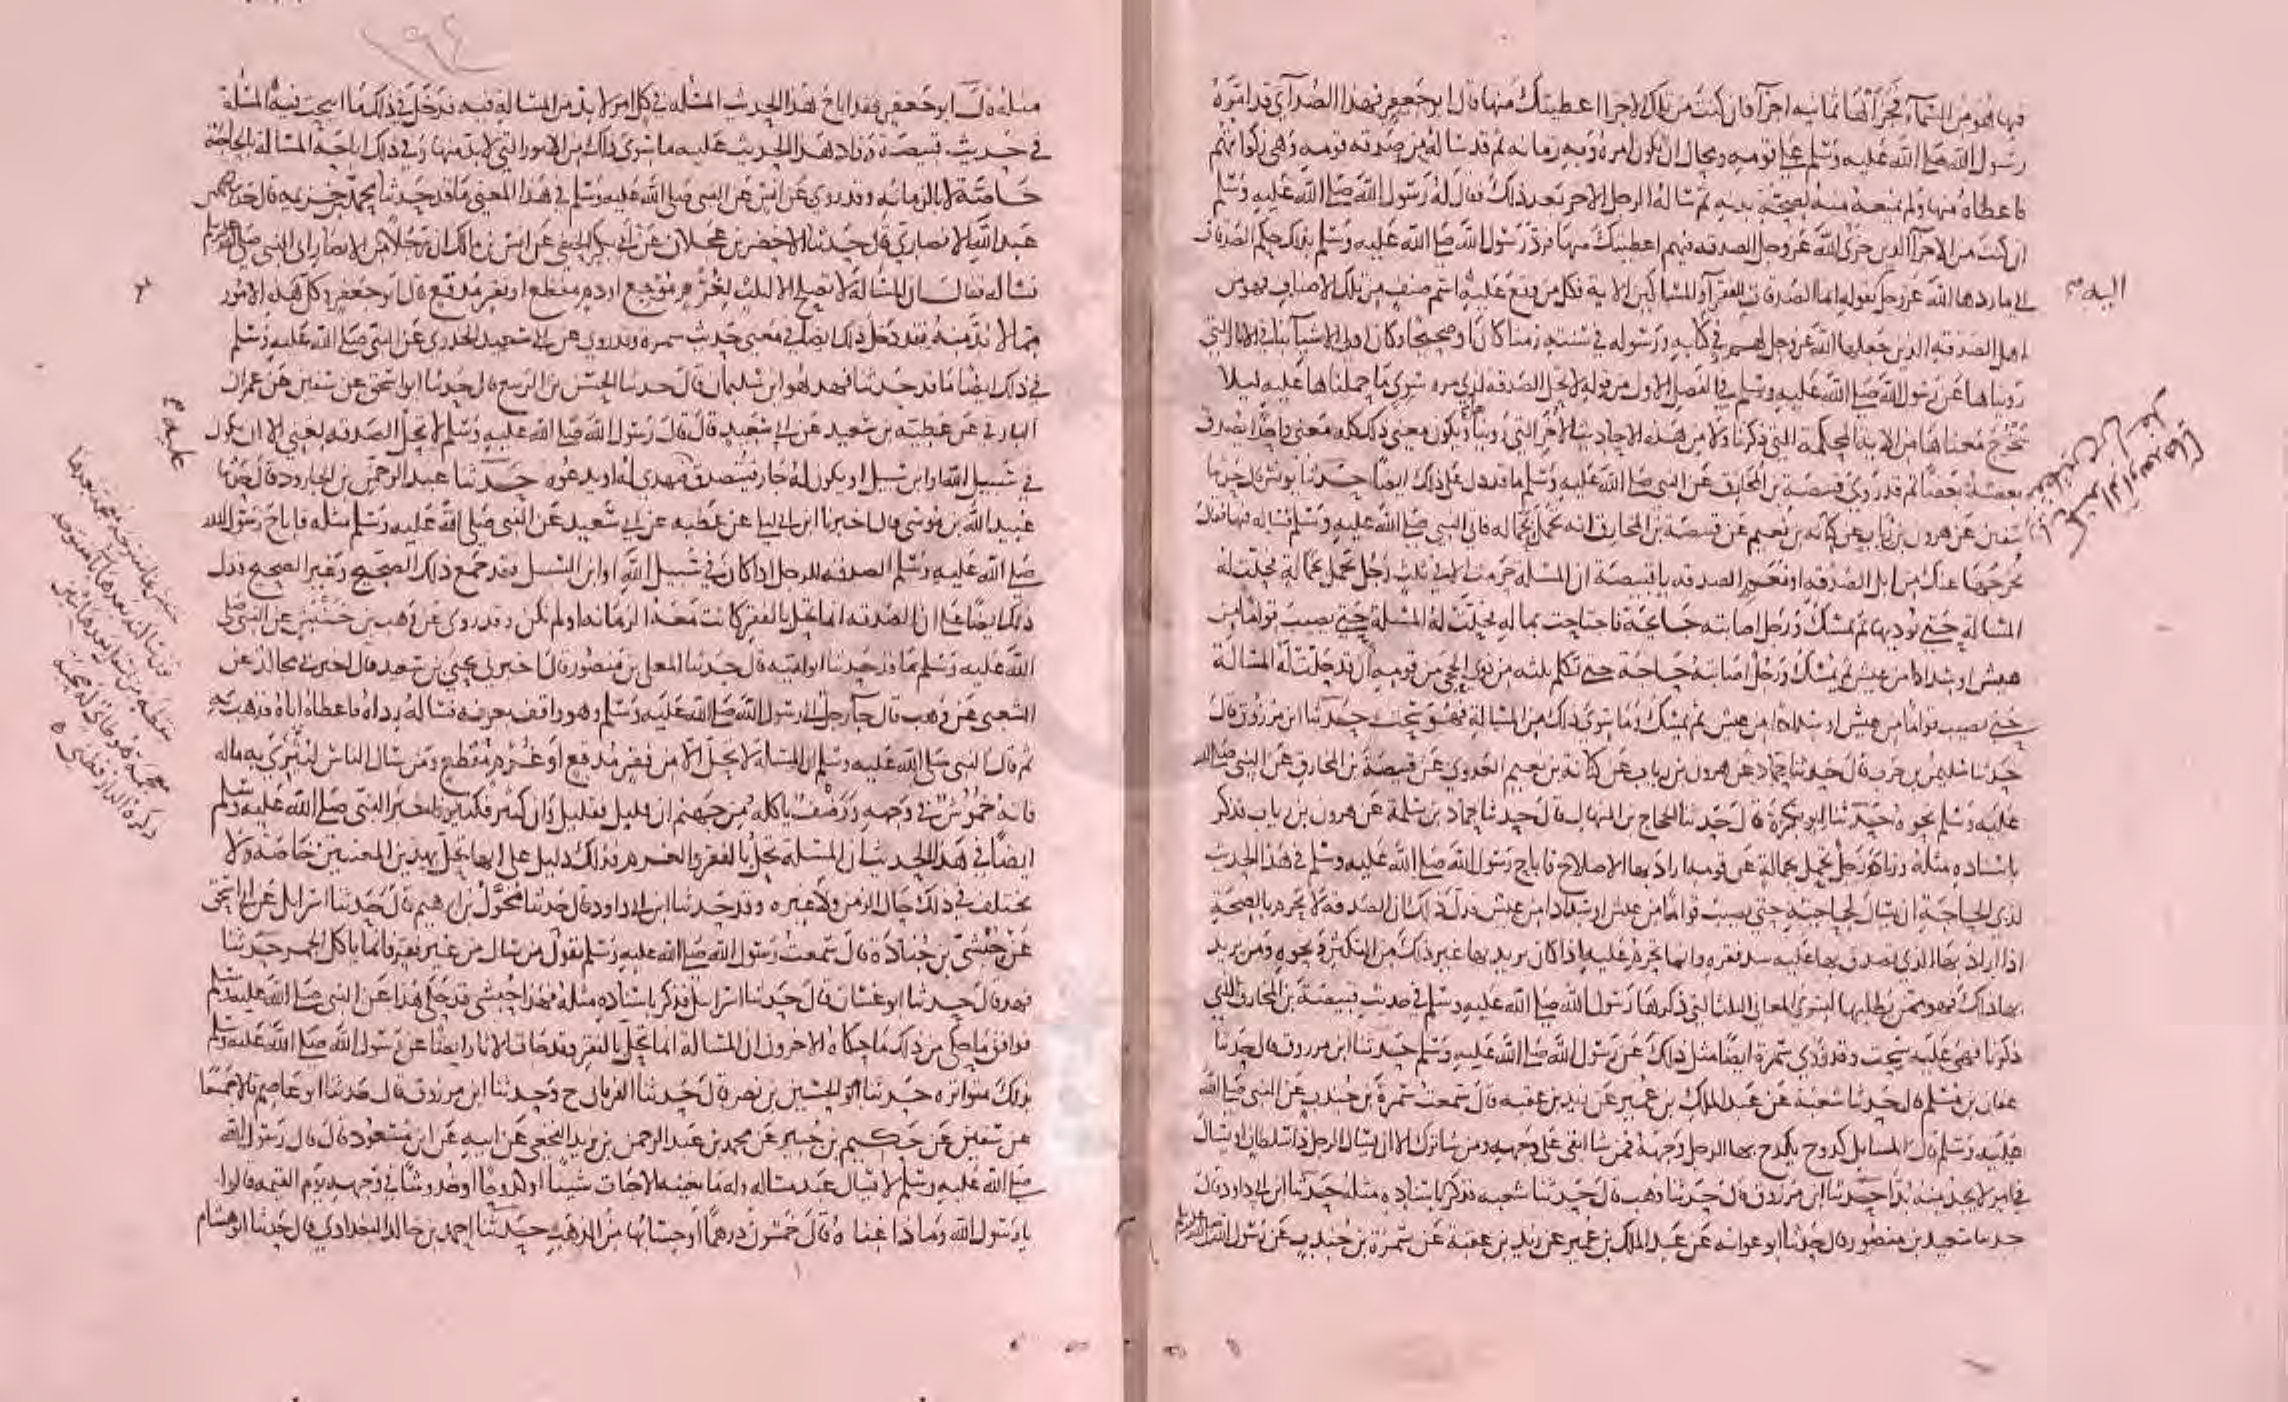 فيها هو من السماء فجزأها ثمانيه اجزآ فان كنت من تلك الاجزا اعطيتك منها قال ابو جعفر فهذا الصدآي قد امره
رسول الله صلى الله عليه وسلم على قومه ومحال ان يكون امره وبه زمانه ثم قد ساله من صدقه قومه وهي زكواتهم
فاعطاه منها ولم يمنعه منه لصحة بدنه ثم ساله الرجل الاخر بعد ذلك فقال له رسول الله صلى الله عليه وسلم
ان كنت من الاجزآ الذين جزى الله عز وجل الصدقه فيهم اعطيتك منها فرد رسول الله صلى الله عليه وسلم بذلك حكم الصدقات
الى ما ردها الله عز وجل بقوله انما الصدقات للفقرآ والمساكين الاية فكل من وقع عليه اسم صنف من تلك الاصناف فهو من
اهل الصدقه الذين جعلها الله عز وجل لهم في كتابه ورسوله في سنته زمنا كان او صحيحا وكان اولى الاشيآ بنا في الاثار التي
رويناها عن رسول الله صلى الله عليه وسلم في الفصل الاول من قوله لا تحل الصدقه لذي مره سوي ما حملناها عليه ليلا
تخرج معناها من الاية المحكمة التي ذكرنا ولا من هذه الاحاديث الاخر التي روينا ويكون معنى ذلك كله معنى واحدا يصدق
بعضه بعضا ثم قد روى قبيصة بن المخارق عن النبي صلى الله عليه وسلم ما قد دل على ذلك ايضا حدثنا يونس قال اخبرنا
سفين عن هرون بن رياب عن كنانه بن نعيم عن قبيصة بن المخارق انه تحمل بحماله فاتى النبي صلى الله عليه وسلم فساله فيها فقال
نخرجها عنك من ابل الصدقه او نعم الصدقه يا قبيصة ان المسلة حرمت الا في ثلث رجل تحمل بحمالة فحلت له
المسالة حتى يوديها ثم يمسك ورجل اصابته جايحة فاجتاحت بماله فحلت له المسلة حتى يصيب قواما من
عيش او سدادا من عيش ثم يمسك ورجل اصابته حاجة حتى تكلم ثلثه من ذوي الحجى من قومه ان قد حلت له المسالة
حتى يصيب قواما من عيش او سدادا من عيش ثم يمسك وما سوى ذلك من المسالة فهو سحت حدثنا ابن مرزوق قال
حدثنا سليمن بن حرب قال حدثنا حماد عن هرون بن رياب عن كنانة بن نعيم العدوي عن قبيصة بن المخارق عن النبي صلى الله
عليه وسلم نحوه حدثنا ابو بكرة قال حدثنا الحجاج بن المنهال قال حدثنا حماد بن سلمة عن هرون بن رياب فذكر
باسناده مثله وزاد رجل تحمل بحمالة عن قومه اراد بها الاصلاح فاباح رسول الله صلى الله عليه وسلم في هذا الحديث
لذي الحاجة ان يسال لحاجته حتى يصيب قواما من عيش او سدادا من عيش فدل ذلك ان الصدقه لا تحرم بالصحة
اذا اراد بها الذي تصدق بها عليه سد فقره وانما تحرم عليه اذا كان يريد بها غير ذلك من التكثر ونحوه ومن يريد
بها ذلك فهو ممن يطلبها لسوى المعاني الثلثة التي ذكرها رسول الله صلى الله عليه وسلم في حديث قبيصة بن المخارق الذي
ذكرنا فهي عليه سحت وقد روى سمرة ايضا مثل ذلك عن رسول الله صلى الله عليه وسلم حدثنا ابن مرزوق قال حدثنا
عفان بن مسلم قال حدثنا شعبة عن عبد الملك بن عمير عن زيد بن عقبه قال سمعت سمرة بن جندب عن النبي صلى الله
عليه وسلم قال المسايل كدوح يكدح بها الرجل وجهه فمن شا ابقى على وجهه ومن شا ترك الا ان يسال الرجل ذا سلطان او يسال
في امر لا يجد منه بدا حدثنا ابن مرزوق قال حدثنا وهب قال حدثنا شعبه فذكر باسناده مثله حدثنا ابن ابي داود قال
حدثنا سعيد بن منصور قال حدثنا ابو عوانه عن عبد الملك بن عمير عن زيد بن عقبة عن سمرة بن جندب عن رسول الله صلى الله عليه وسلم
اليه م
١٩٤
مثله قال ابو جعفر فقد اباح هذا الحديث المسله في كل امر لا بد من المسالة فيه فدخل في ذلك ما ابيحت فيه المسلة
في حديث قبيصة وزاد هذا الحديث عليه ما سوى ذلك من الامور التي لا بد منها وفي ذلك اباحة المسالة بالحاجة
خاصة لا بالزمانه وقد روي عن انس عن النبي صلى الله عليه وسلم في هذا المعنى ما قد حدثنا محمد بن خزيمه قال حدثنا محمد بن
عبد الله الانصاري قال حدثنا الاخضر بن عجلان عن ابي بكر الحنفي عن انس بن مالك ان رجلا من الانصار اتى النبي صلى الله عليه وسلم
فساله فقال ان المسالة لا تصلح الا لثلث لغرم موجع او دم مفظع او فقر مدقع قال ابو جعفر وكل هذه الامور
مما لا بد منه فقد دخل ذلك ايضا في معنى حديث سمره وقد روي عن ابي سعيد الخدري عن النبي صلى الله عليه وسلم
في ذلك ايضا ما قد حدثنا فهد هو ابن سليمان قال حدثنا الحسن بن الربيع قال حدثنا ابو اسحق عن سفين عن عمران
البارقي عن عطية بن سعيد عن ابي سعيد قال قال رسول الله صلى الله عليه وسلم لا تحل الصدقه لغني الا ان يكون
في سبيل الله او ابن سبيل او يكون له جار فيتصدق فيهدي له او يدعوه حدثنا عبد الرحمن بن الجارود قال حدثنا
عبيد الله بن موسى قال اخبرنا ابن ابي ليلى عن عطيه عن ابي سعيد عن النبي صلى الله عليه وسلم مثله فاباح رسول الله
صلى الله عليه وسلم الصدقه للرجل اذا كان في سبيل الله او ابن السبيل فقد جمع ذلك الصحيح وغير الصحيح ودل
ذلك ايضا على ان الصدقه انما تحل بالفقر كانت معه الزمانه او لم تكن وقد روي عن وهب بن خنبش عن النبي صلى
الله عليه وسلم ما قد حدثنا ابو اميه قال حدثنا المعلى بن منصور قال اخبرني يحيى بن سعد قال اخبرني مجالد عن
الشعبي عن وهب قال جآ رجل الى رسول الله صلى الله عليه وسلم وهو واقف بعرفه فساله رداه فاعطاه اياه فذهب به
ثم قال النبي صلى الله عليه وسلم ان المسالة لا تحل الا من فقر مدقع او غرم مفظع ومن سال الناس ليثري به ماله
فانه خموش في وجهه ورضف ياكله من جهنم ان قليل فقليل وان كثير فكثير فاخبر النبي صلى الله عليه وسلم
ايضا في هذا الحديث ان المسلة تحل بالفقر والغرم فذلك دليل على انها تحل بهذين المعنيين خاصة ولا
يختلف في ذلك حال الزمن ولا غيره وقد حدثنا ابن ابي داود قال حدثنا مخول بن ابرهيم قال حدثنا اسرائل عن ابي اسحق
عن حبشي بن جنادة قال سمعت رسول الله صلى الله عليه وسلم يقول من سال من غير فقر فانما ياكل الجمر حدثنا
فهد قال حدثنا ابو غسان قال حدثنا اسرائل فذكر باسناده مثله فهذا حبشي قد حكى هذا عن النبي صلى الله عليه وسلم
فوافق ما حكى من ذلك ما حكاه الاخرون ان المسالة انما تحل بالفقر وقد جات الاثار ايضا عن رسول الله صلى الله عليه وسلم
بذلك متواتره حدثنا ابو الحسين بن نصر قال حدثنا الفريابي ح وحدثنا ابن مرزوق قال حدثنا ابو عاصم قالا جميعا
عن سفين عن حكيم بن جبير عن محمد بن عبد الرحمن بن يزيد النخعي عن ابيه عن ابن مسعود قال قال رسول الله
صلى الله عليه وسلم لا يسال عبد مساله وله ما يغنيه الا جات شينا او كدوحا او خدوشا في وجهه يوم القيمه قالوا
يا رسول الله وماذا غناه قال خمسون درهما او حسابها من الذهب حدثنا احمد بن خالد البغدادي قال حدثنا ابو هشام
عليه م